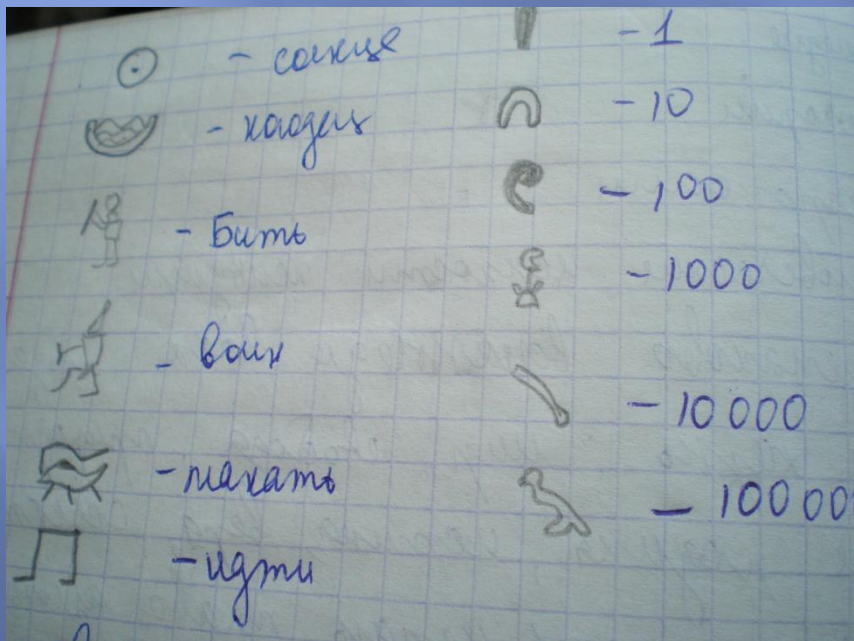 - солнце
- колодец
- Бить
- воин
- плакать
- идти
- 1
- 10
- 100
- 1000
- 10 000
- 10000